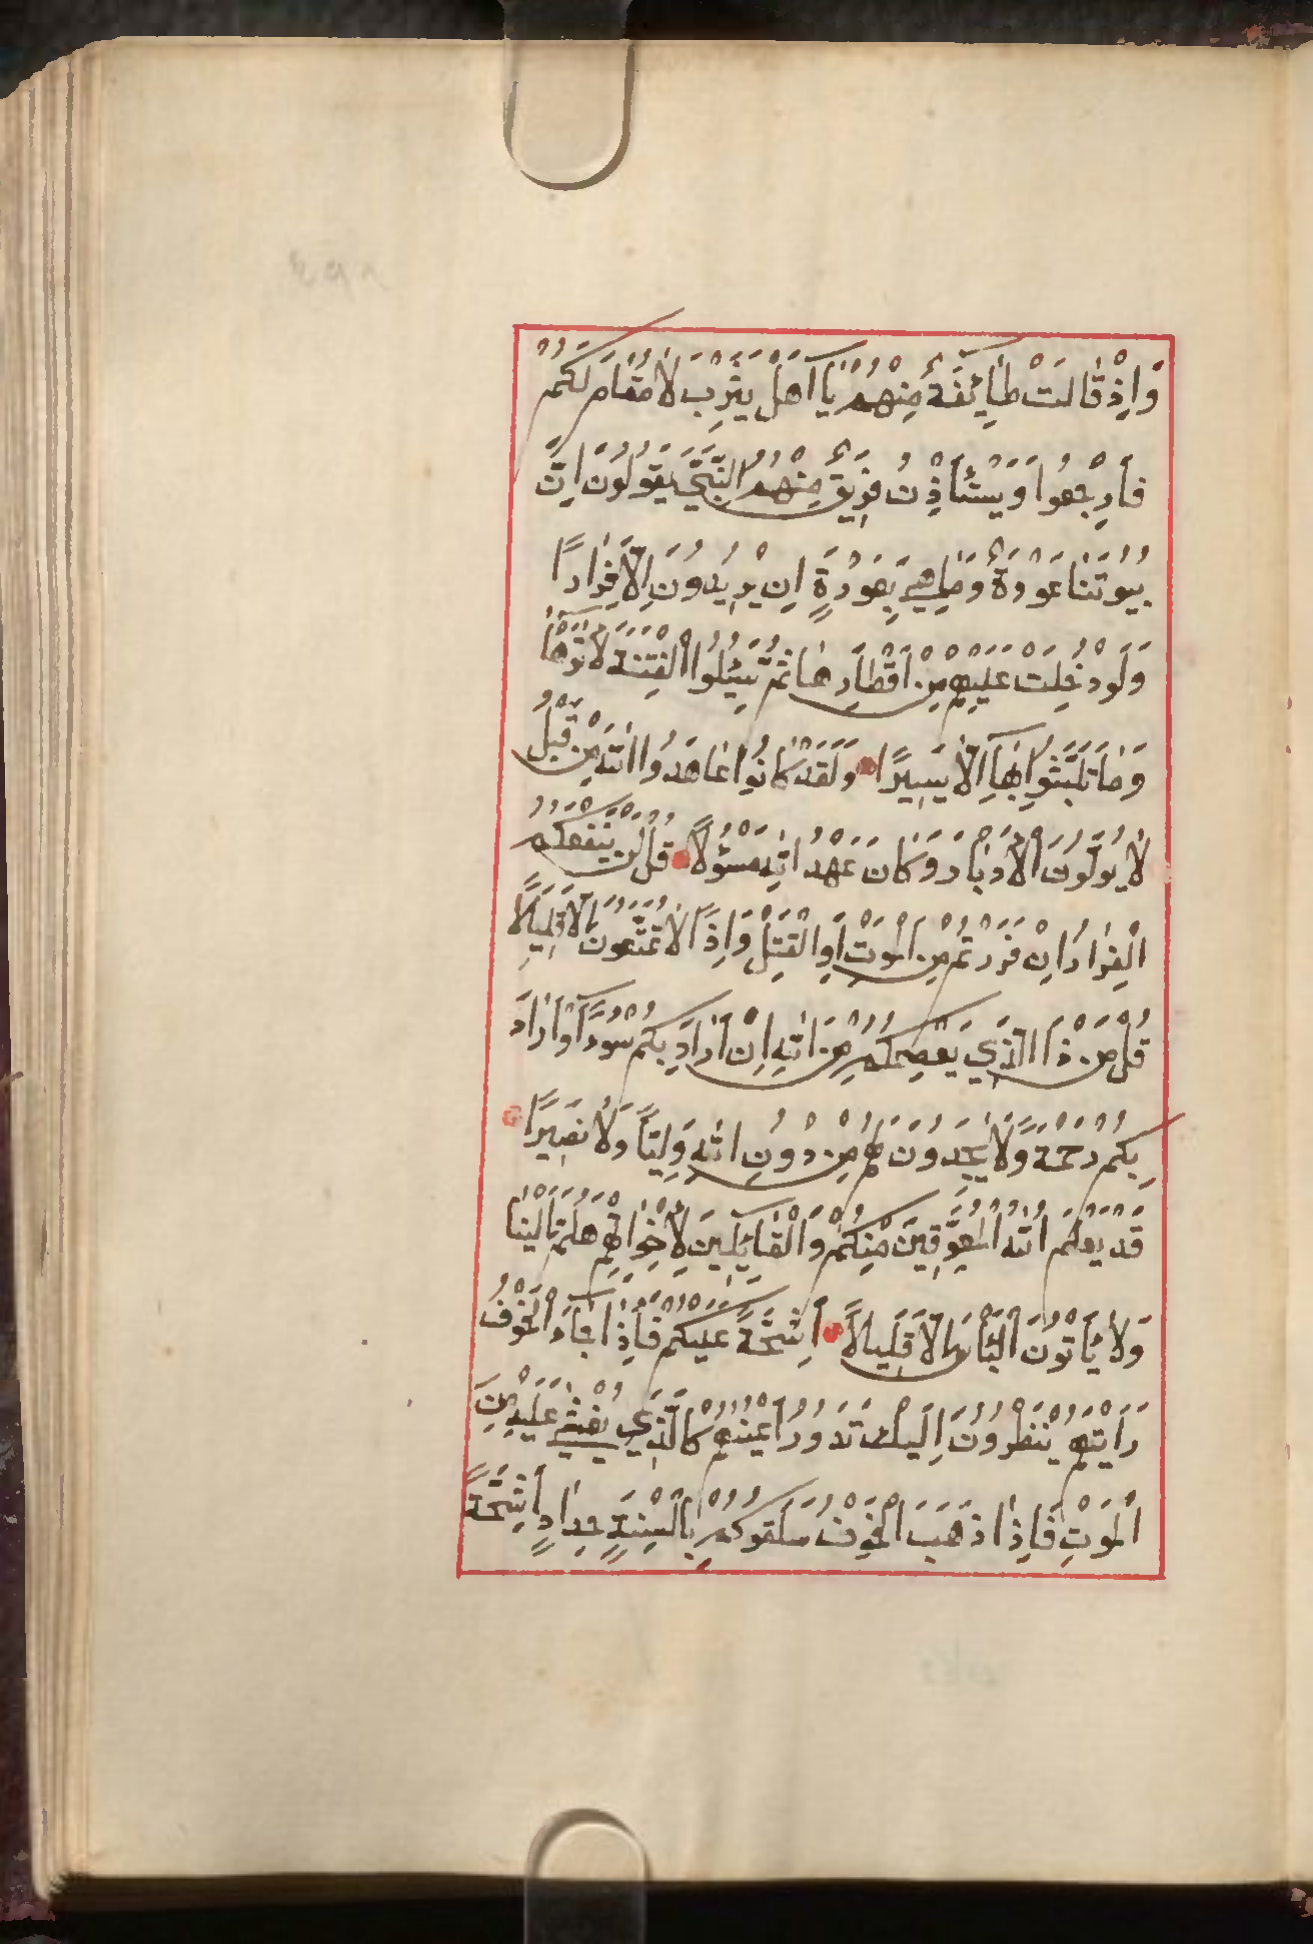 وَإِذْ قَالَتْ طَائِفَةٌ مِنْهُمْ يَا أَهْلَ يَثْرِبَ لَا مُقَامَ لَكُمْ
فَارْجِعُوا وَيَسْتَأْذِنُ فَرِيقٌ مِنْهُمُ النَّبِيَّ يَقُولُونَ إِنَّ
بُيُوتَنَا عَوْرَةٌ وَمَا هِيَ بِعَوْرَةٍ إِنْ يُرِيدُونَ إِلَّا فِرَارًا
وَلَوْ دُخِلَتْ عَلَيْهِمْ مِنْ أَقْطَارِهَا ثُمَّ سُئِلُوا الْفِتْنَةَ لَآتَوْهَا
وَمَا تَلَبَّثُوا بِهَا إِلَّا يَسِيرًا وَلَقَدْ كَانُوا عَاهَدُوا اللَّهَ مِنْ قَبْلُ
لَا يُوَلُّونَ الْأَدْبَارَ وَكَانَ عَهْدُ اللَّهِ مَسْئُولًا قُلْ لَنْ يَنْفَعَكُمُ
الْفِرَارُ إِنْ فَرَرْتُمْ مِنَ الْمَوْتِ أَوِ الْقَتْلِ وَإِذًا لَا تُمَتَّعُونَ إِلَّا قَلِيلًا
قُلْ مَنْ ذَا الَّذِي يَعْصِمُكُمْ مِنَ اللَّهِ إِنْ أَرَادَ بِكُمْ سُوءًا أَوْ أَرَادَ
بِكُمْ رَحْمَةً وَلَا يَجِدُونَ لَهُمْ مِنْ دُونِ اللَّهِ وَلِيًّا وَلَا نَصِيرًا
قَدْ يَعْلَمُ اللَّهُ الْمُعَوِّقِينَ مِنْكُمْ وَالْقَائِلِينَ لِإِخْوَانِهِمْ هَلُمَّ إِلَيْنَا
وَلَا يَأْتُونَ الْبَأْسَ إِلَّا قَلِيلًا أَشِحَّةً عَلَيْكُمْ فَإِذَا جَاءَ الْخَوْفُ
رَأَيْتَهُمْ يَنْظُرُونَ إِلَيْكَ تَدُورُ أَعْيُنُهُمْ كَالَّذِي يُغْشَى عَلَيْهِ مِنَ
الْمَوْتِ فَإِذَا ذَهَبَ الْخَوْفُ سَلَقُوكُمْ بِأَلْسِنَةٍ حِدَادٍ أَشِحَّةً